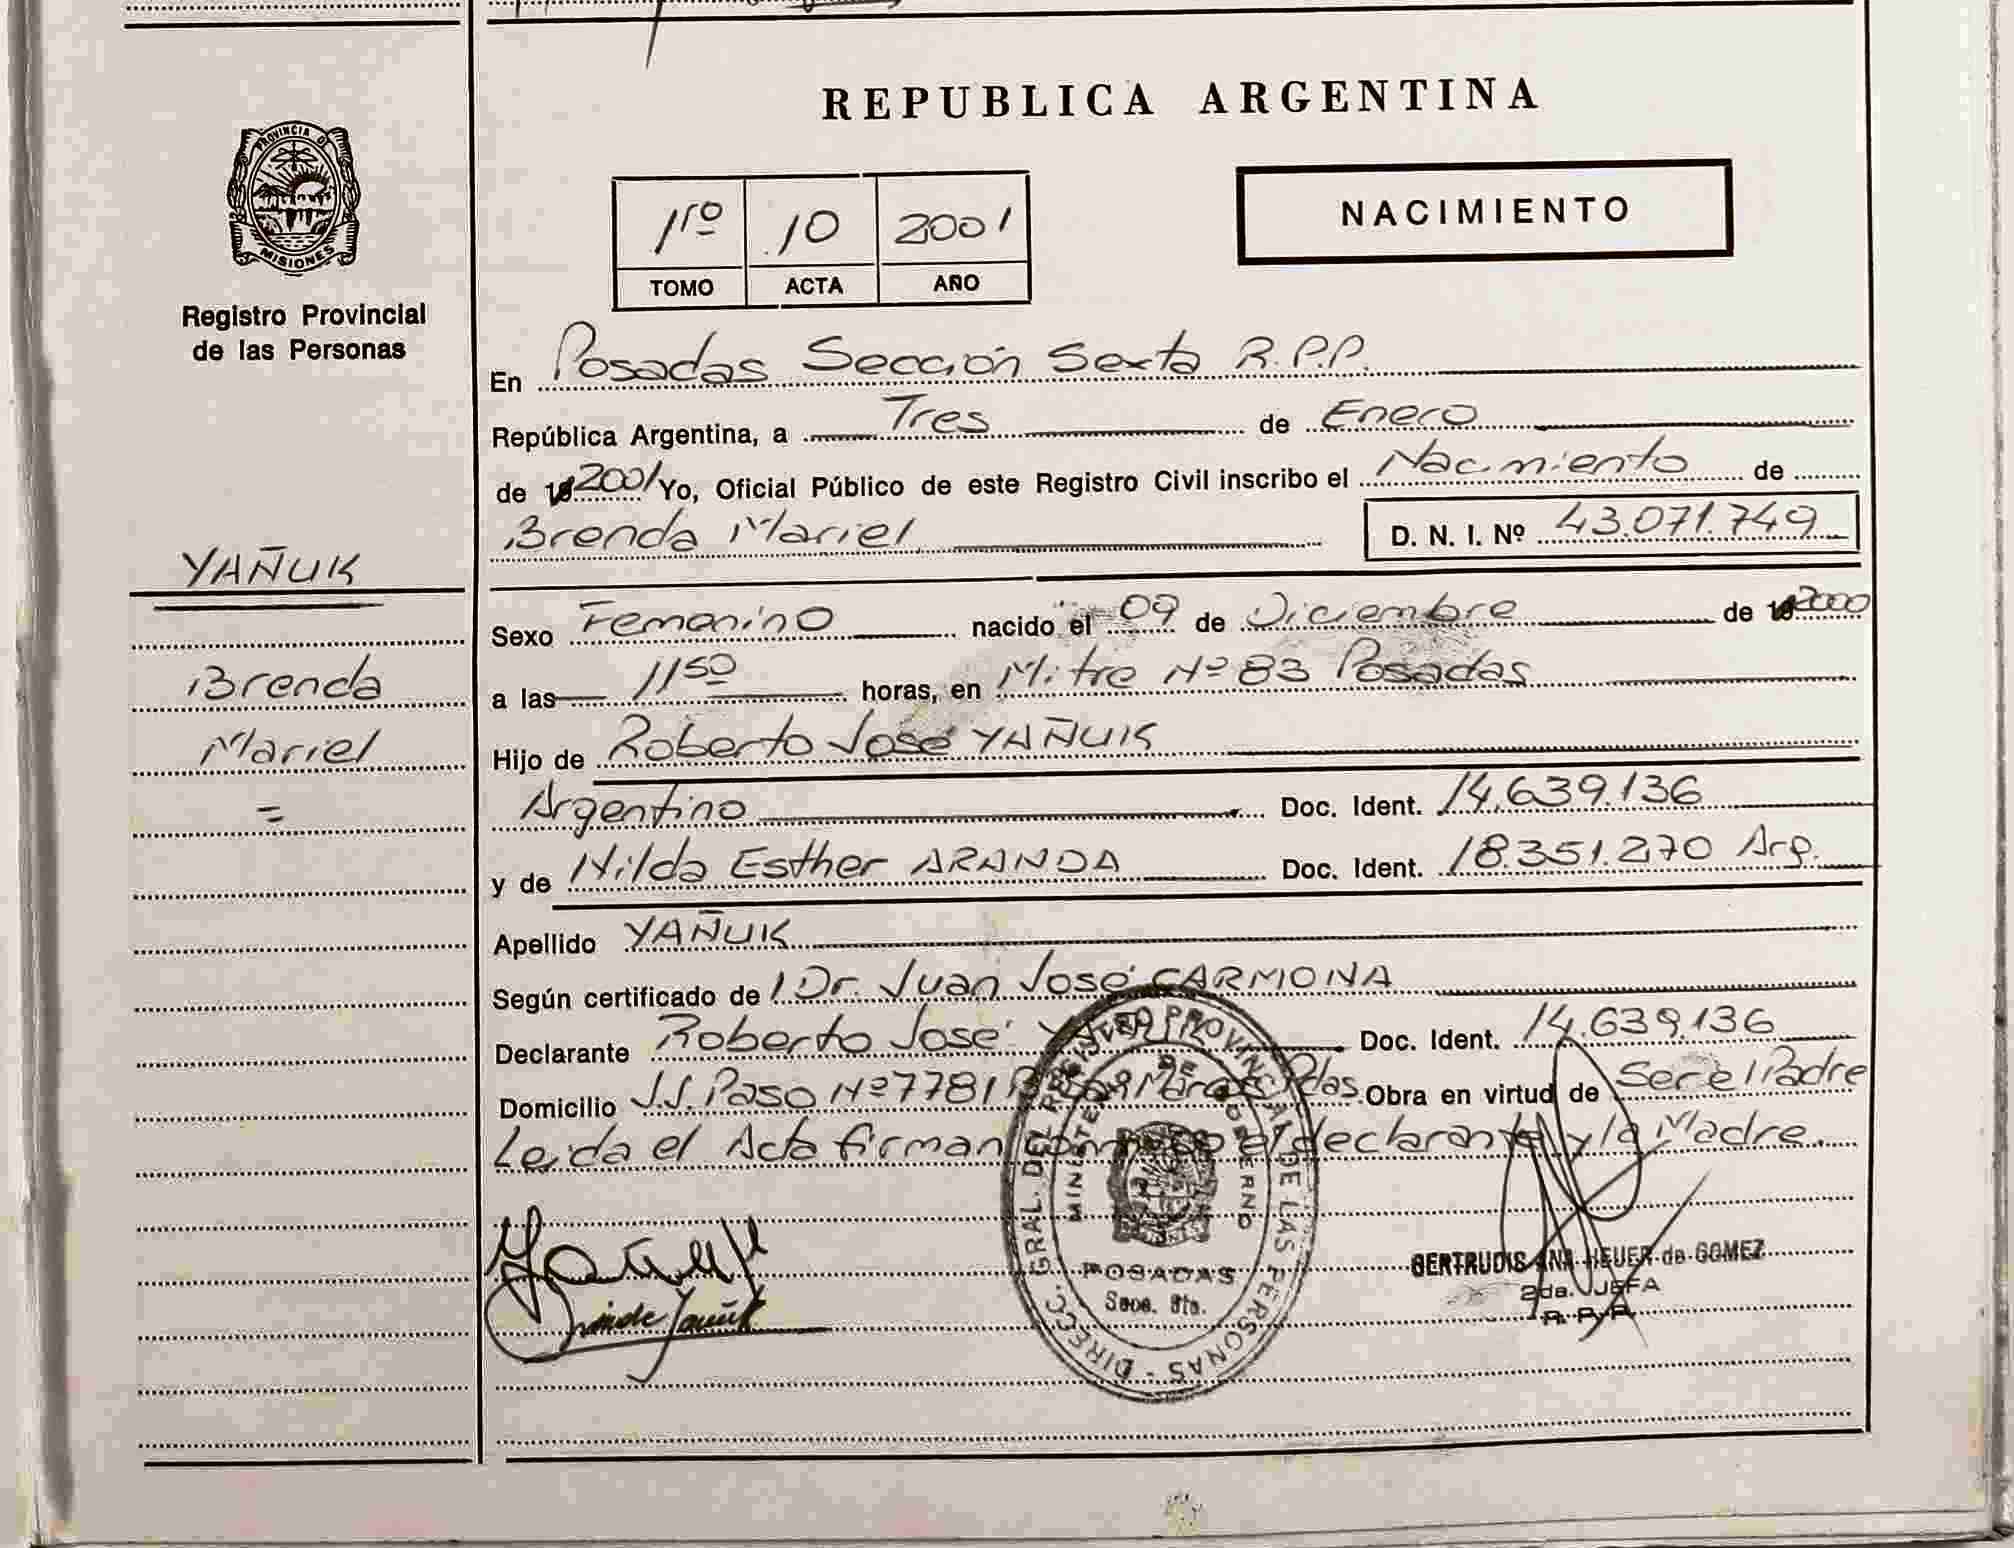 REPUBLICA ARGENTINA
PROVINCIA DE MISIONES
Registro Provincial
de las Personas
1ro 10 2001
TOMO ACTA AÑO
NACIMIENTO
En Posadas Sección Sexta R.P.P.
República Argentina, a Tres de Enero
de 2001 Yo, Oficial Público de este Registro Civil inscribo el Nacimiento de
Brenda Mariel D. N. I. Nº 43.071.749
YAÑUK
Brenda
Mariel
=
Sexo Femenino nacido el 09 de Diciembre de 2000
a las 11 50 horas, en Mitre Nº 83 Posadas
Hijo de Roberto José YAÑUK
Argentino Doc. Ident. 14.639.136
y de Nilda Esther ARANDA Doc. Ident. 18.351.270 Arg.
Apellido YAÑUK
Según certificado de l Dr. Juan José CARMONA
Declarante Roberto José Doc. Ident. 14.639.136
Domicilio J.J. Paso Nº 7781 Pdas. Obra en virtud de Ser el Padre
Leida el Acta firman conmigo el declarante y la Madre.
DIREC. GRAL. DEL REGISTRO PROVINCIAL DE LAS PERSONAS
MINISTERIO DE GOBIERNO
POSADAS
Secc. 6ta.
GERTRUDIS ANA HEUER de GOMEZ
2da. JEFA
R. P. P.